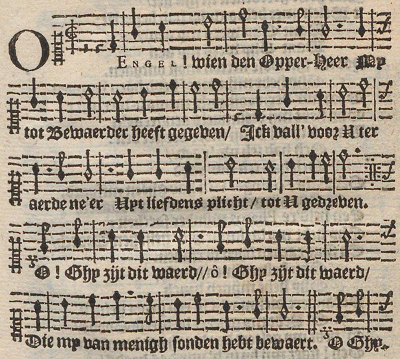 O ENGEL! wien den Opper-Heer My
tot Bewaerder heeft gegeven/ Ick vall' voor U ter
aerde ne'er Uyt liefdens plicht/ tot U gedreven.
O! Ghy zijt dit waerd// ô! Ghy zijt dit waerd/
Die my van menigh sonden hebt bewaert. O Ghy.